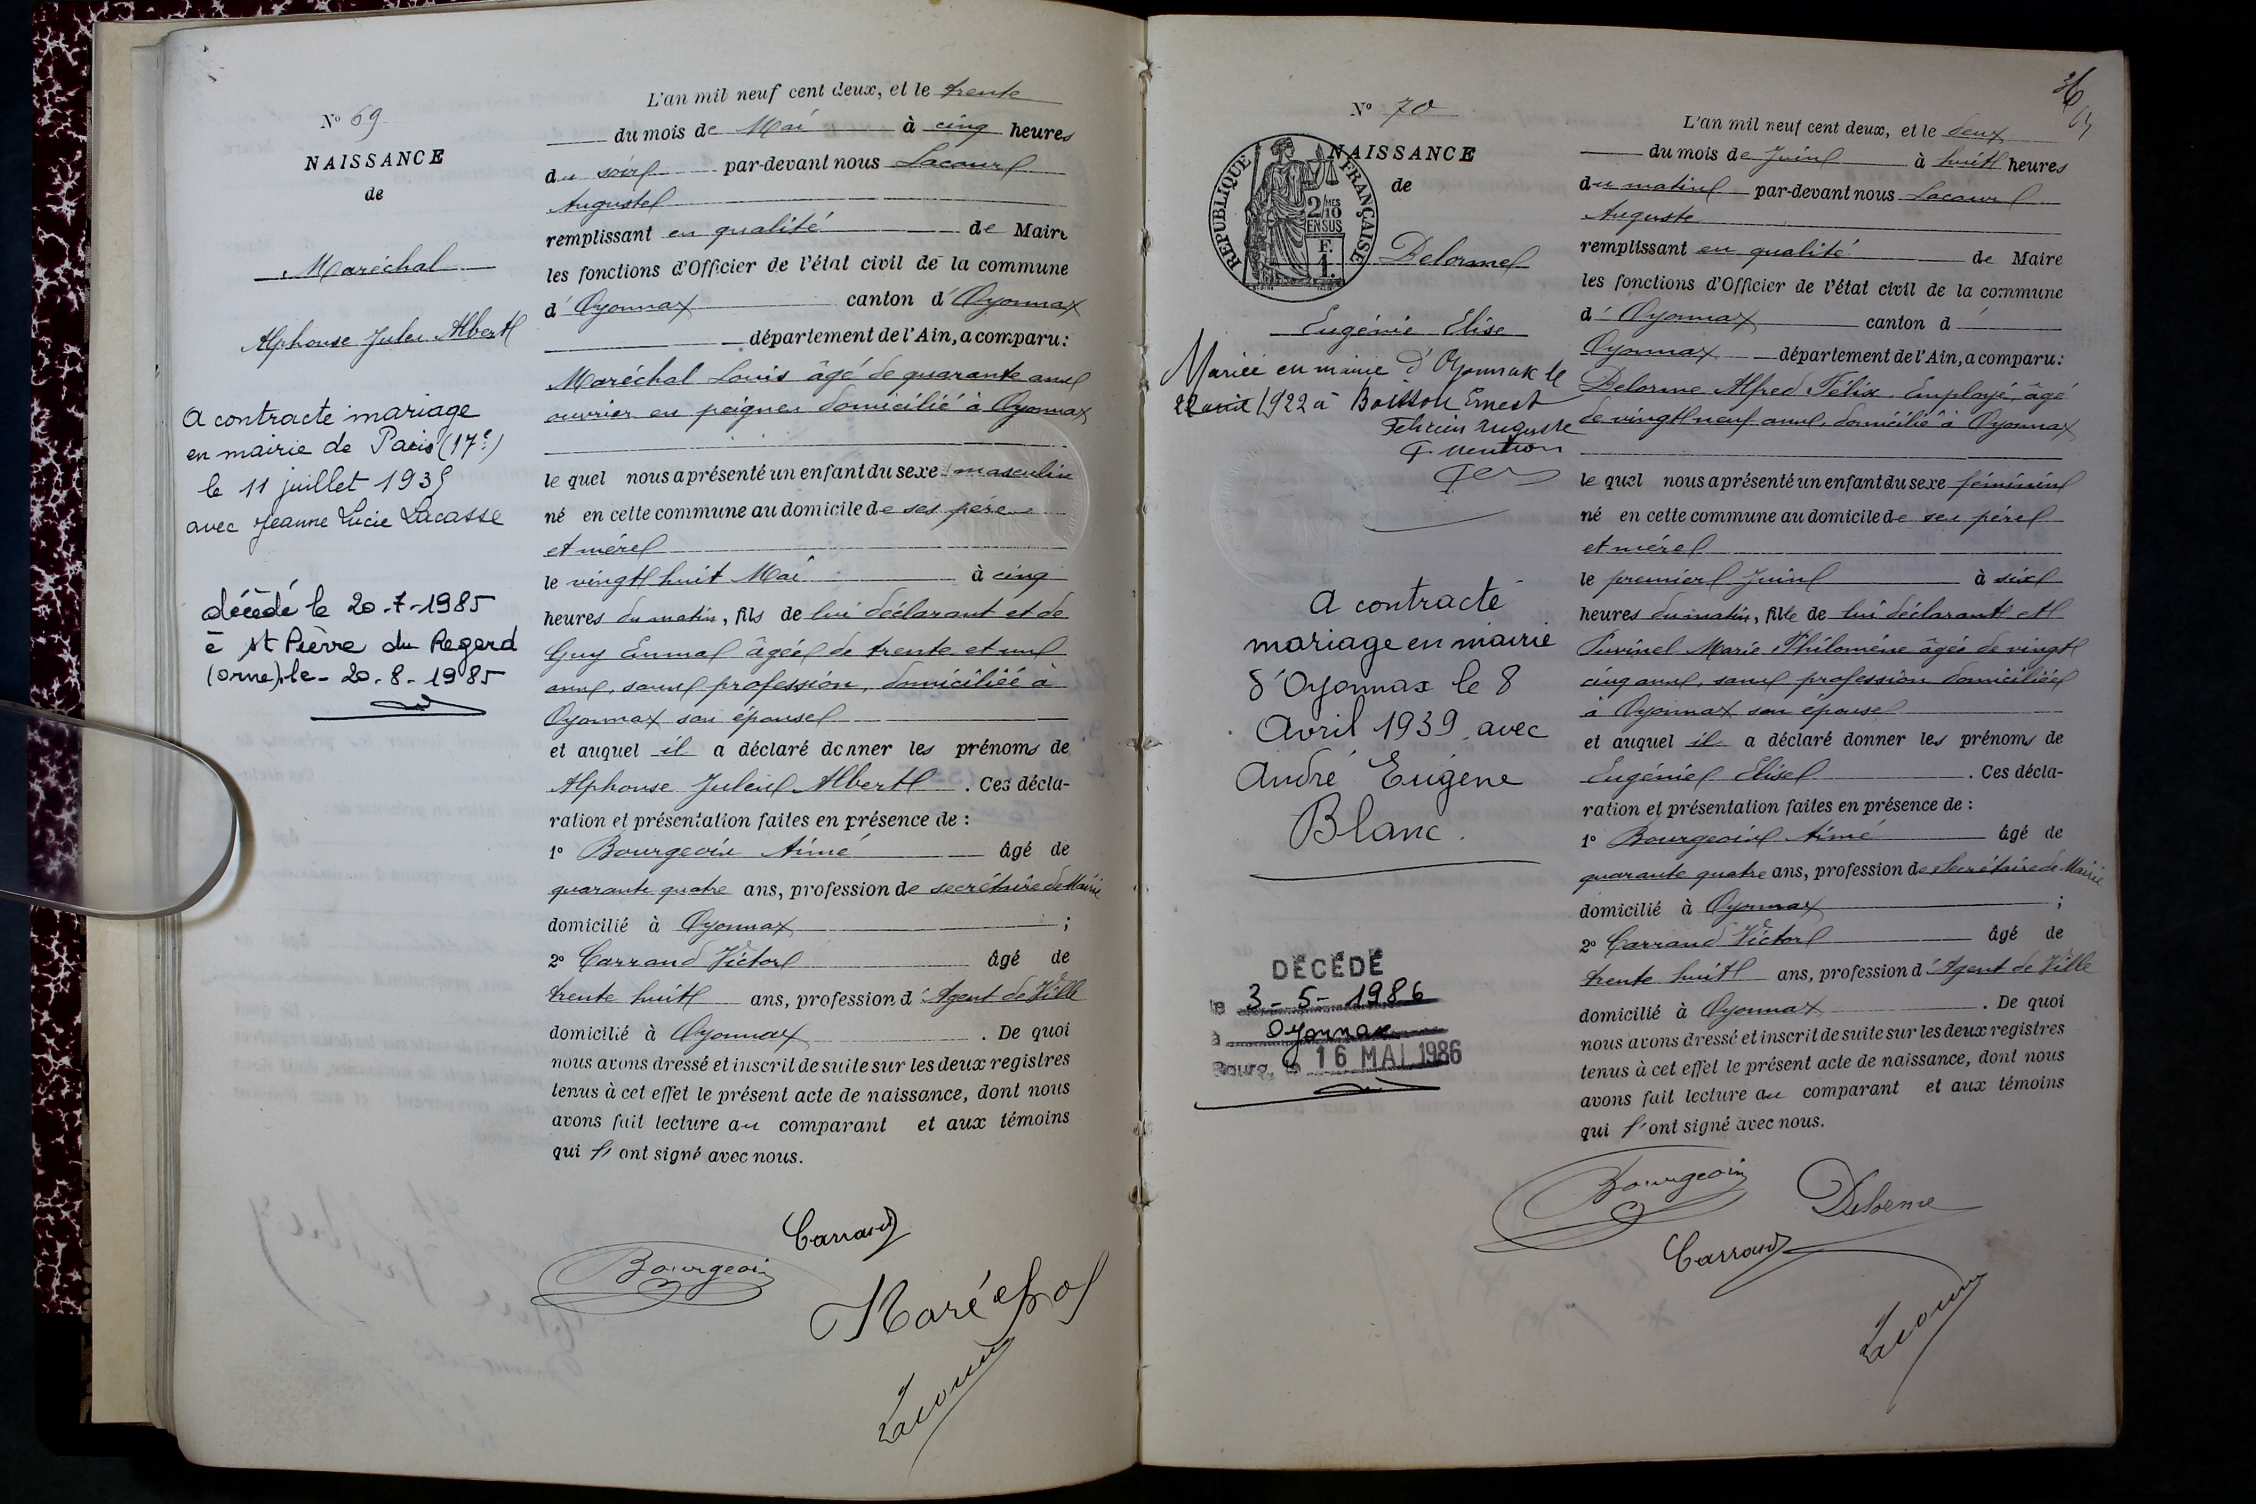 No 69
NAISSANCE
de
Maréchal
Alphonse Jules Albert
a contracté mariage
en mairie de Paris (17e)
le 11 juillet 1935
avec Jeanne Lucie Lacasse
décédé le 20-7-1985
à St Pierre du Regard
(Orne) le - 20-8-1985
L'an mil neuf cent deux, et le trente
du mois de Mai à cinq heures
du soir par-devant nous Lacour
Auguste
remplissant en qualité de Maire
les fonctions d'Officier de l'état civil de la commune
d'Oyonnax canton d'Oyonnax
département de l'Ain, a comparu:
Maréchal Louis âgé de quarante ans
ouvrier en peignes domicilié à Oyonnax
le quel nous a présenté un enfant du sexe masculin
né en cette commune au domicile de ses père
et mère
le vingt huit Mai à cinq
heures du matin, fils de lui déclarant et de
Guy Emma âgée de trente et un
ans, sans profession, domiciliée à
Oyonnax son épouse
et auquel il a déclaré donner les prénoms de
Alphonse Jules Albert. Ces décla-
ration et présentation faites en présence de :
1° Bourgeois Aimé âgé de
quarante quatre ans, profession de secrétaire de Mairie
domicilié à Oyonnax ;
2° Carrand Victor âgé de
trente huit ans, profession d'Agent de Ville
domicilié à Oyonnax. De quoi
nous avons dressé et inscrit de suite sur les deux registres
tenus à cet effet le présent acte de naissance, dont nous
avons fait lecture au comparant et aux témoins
qui l'ont signé avec nous.
Carrand
Bourgeois
Maréchal
Lacour
36
No 70
NAISSANCE
de
REPUBLIQUE FRANÇAISE
2/10 MES
EN SUS
F.
1.
Delorme
Eugénie Elise
Mariée en mairie d'Oyonnax le
22 avril 1922 à Boisson Ernest
Félicien Auguste
mention
a contracté
mariage en mairie
d'Oyonnax le 8
Avril 1939 avec
André Eugène
Blanc.
DÉCÉDÉ
le 3-5-1986
à Oyonnax
Bourg, le 16 MAI 1986
L'an mil neuf cent deux, et le deux
du mois de Juin à huit heures
du matin par-devant nous Lacour
Auguste
remplissant en qualité de Maire
les fonctions d'Officier de l'état civil de la commune
d'Oyonnax canton d'
Oyonnax département de l'Ain, a comparu:
Delorme Alfred Félix, Employé, âgé
de vingt neuf ans, domicilié à Oyonnax
le quel nous a présenté un enfant du sexe féminin
né en cette commune au domicile de ses père
et mère
le premier Juin à six
heures du matin, fille de lui déclarant et
Marie Philomène âgée de vingt
cinq ans, sans profession domiciliée
à Oyonnax son épouse
et auquel il a déclaré donner les prénoms de
Eugénie Elise. Ces décla-
ration et présentation faites en présence de :
1° Bourgeois Aimé âgé de
quarante quatre ans, profession de Secrétaire de Mairie
domicilié à Oyonnax ;
2° Carrand Victor âgé de
trente huit ans, profession d'Agent de Ville
domicilié à Oyonnax. De quoi
nous avons dressé et inscrit de suite sur les deux registres
tenus à cet effet le présent acte de naissance, dont nous
avons fait lecture au comparant et aux témoins
qui l'ont signé avec nous.
Bourgeois
Delorme
Carrand
Lacour